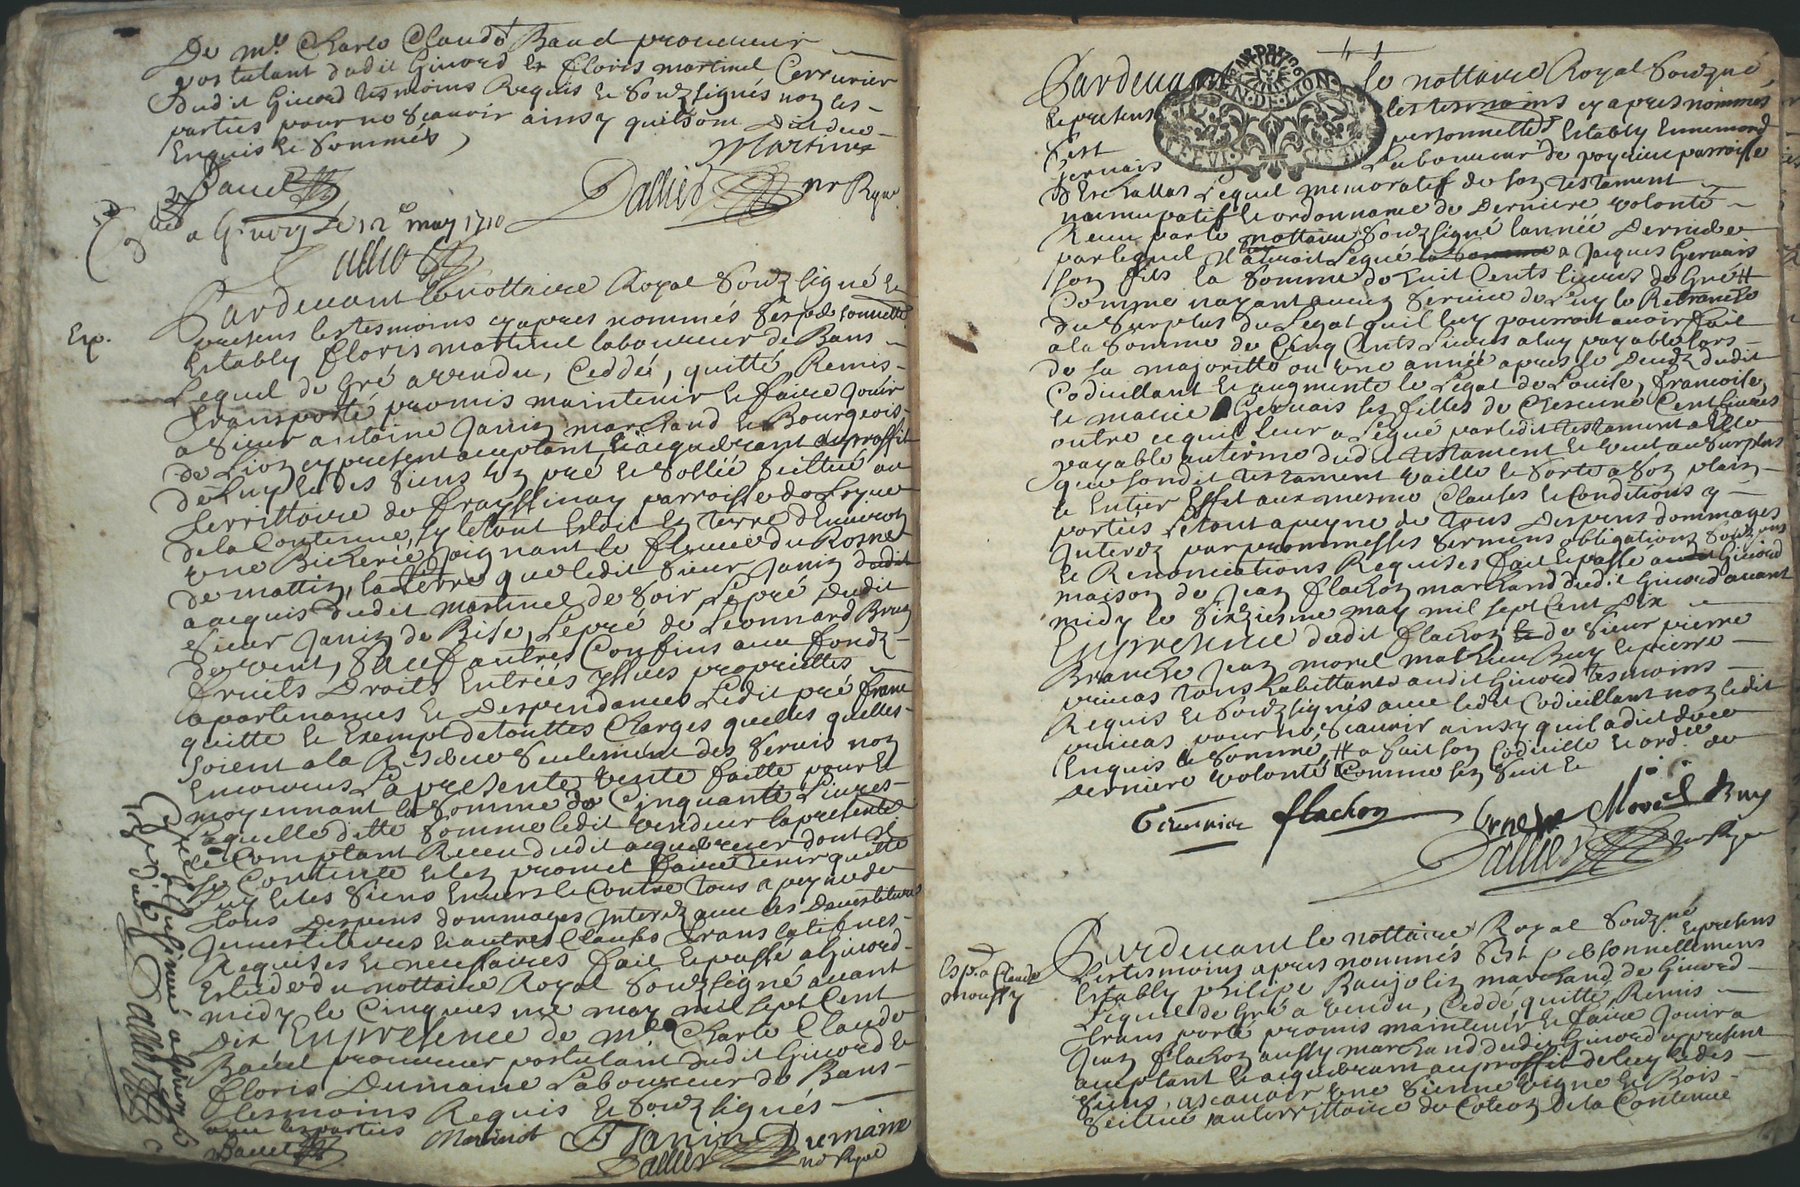 De me Charle Claude Baud procureur
postulant dudit Givord et Floris martinel Cerrurier
dudit Givord tesmoins Requis et Soubzsignés non les
parties pour ne Scavoir ainsy quils ont Dit de ce
Enquis et Sommés
Martinel
Baud
Dallier no Royal
a Givord le 12e may 1710
Dallier
Pardevant le nottaire Royal Soubzsigné et
Ex.
presens les tesmoins cy apres nommés S'est personnellemt
Estably Floris martinel laboureur de Bans
Lequel de Gré a vendu, Ceddé, quitté Remis
Transporté promis maintenir et faire Jouir
a Sieur antoine Janin marchand et Bourgeois
de Lion cy present acceptant et acquerant au proffit
de Luy et des Siens un pré et Sollié Scittué au
Territtoire de frayssinay parroisse de Loyre
de la Contenue, sy le tout Estoit En terre d'Environ
une Bicherée Joignant le fleuve du Rosne
de mattin, la terre que ledit Sieur Janin
a acquis dudit martinel de Soir Le pré dudit
Sieur Janin de Bise, Le pré de Leonnard Bruy
de vent, Sauf autres Confins aux fondz
fruits Droits Entrées yssues proprietés
apartenances et Despendances Ledit pré franc
quitte et Exempt de touttes Charges quelles quelles
soient a la Reserve Seulement des Servis non
Encourus La presente vente faitte pour et
moyennant la Somme de Cinquante Livres
Laquelle ditte Somme ledit vendeur la presente
et Comptant Receu dudit acquereur dont il
se Contente et len promet faire tenir quitte
Luy et les Siens Envers et Contre Tous a peyne de
tous Despens dommages Interez avec les Devestitures
Investitures et autres Clauses translatifves
Requises et necessaires fait et passé a Givord
Estude du nottaire Royal Soubzsigné avant
midy le Cinquiesme may mil sept Cent
Dix En presence de me Charle Claude
Baud procureur postulant dudit Givord et
Floris Dumaine Laboureur de Bans
tesmoins Requis et Soubzsignés
avec les parties
Baud
Martinel
A Janin
Dumaine
Dallier no Royal
Dallier
Pardevant le nottaire Royal Soubzné
et presens les tesmoins cy apres nommés
EN·DE·LION
s'est personnellemt Estably Ennemond
Gervais Laboureur de parroisse
D'Eschallas Lequel memoratif de son testament
nuncupatif et ordonnance de Derniere volonté
Receu par le nottaire Soubzsigné lannée Derniere
par lequel Il auroit Legué a Jacques Gervais
son fils la Somme de huit Cents livres de Gré #
Comme nayant aucun Service de Luy le Retranche
du Surplus du Legat quil luy pourroit avoir fait
a la Somme de Cinq Cents Livres a luy payable lors
de sa majoritté ou une année apres le Decedz dudit
Codicillant et augmente le Legat de Louise, francoise,
et marie Gervais ses filles de Chescune Cent livres
outre ce quil leur a Legué par ledit testament a Elle
payable au terme dudit testament et veut au Surplus
que sondit testament vaille et Sorte a Son plain
et Entier Effet aux mesme Clauses et Conditions y
portées Le tout a peyne de tous Despens dommages
Interez par promesses Sermens obligations Soubzmis
et Renonciations Requises fait et passé audit Givord
maison de Jean flachon marchand dudit Givord avant
midy le Sixiesme may mil sept Cent Dix
En presence dudit flachon de Sieur pierre
Branche Jean morel mathieu Bruy et pierre
vrinas tous habittants audit Givord tesmoins
Requis et Soubzsignés avec ledit Codicillant non ledit
vrinas pour ne Scavoir ainsy quil a dit de ce
Enquis et Sommé, # a fait son Codicille et ordce de
derniere volonté Comme sen Suit et
flachon
Morel
Bruy
Dallier no Royal
Pardevant le nottaire Royal Soubzné et presens
Exp. a Claude
moussy
Les tesmoins apres nommés S'est personnellement
Estably philipe Baujolin marchand de Givord
Lequel de Gré a vendu, Ceddé quitté Remis
transporté promis maintenir et faire Jouir a
Jean flachon aussy marchand dudit Givord cy present
acceptant et acquerant au proffit de luy et des
Siens, ascavoir une Sienne vigne et Bois
Scittué au territtoire du Coteon De la Contenue